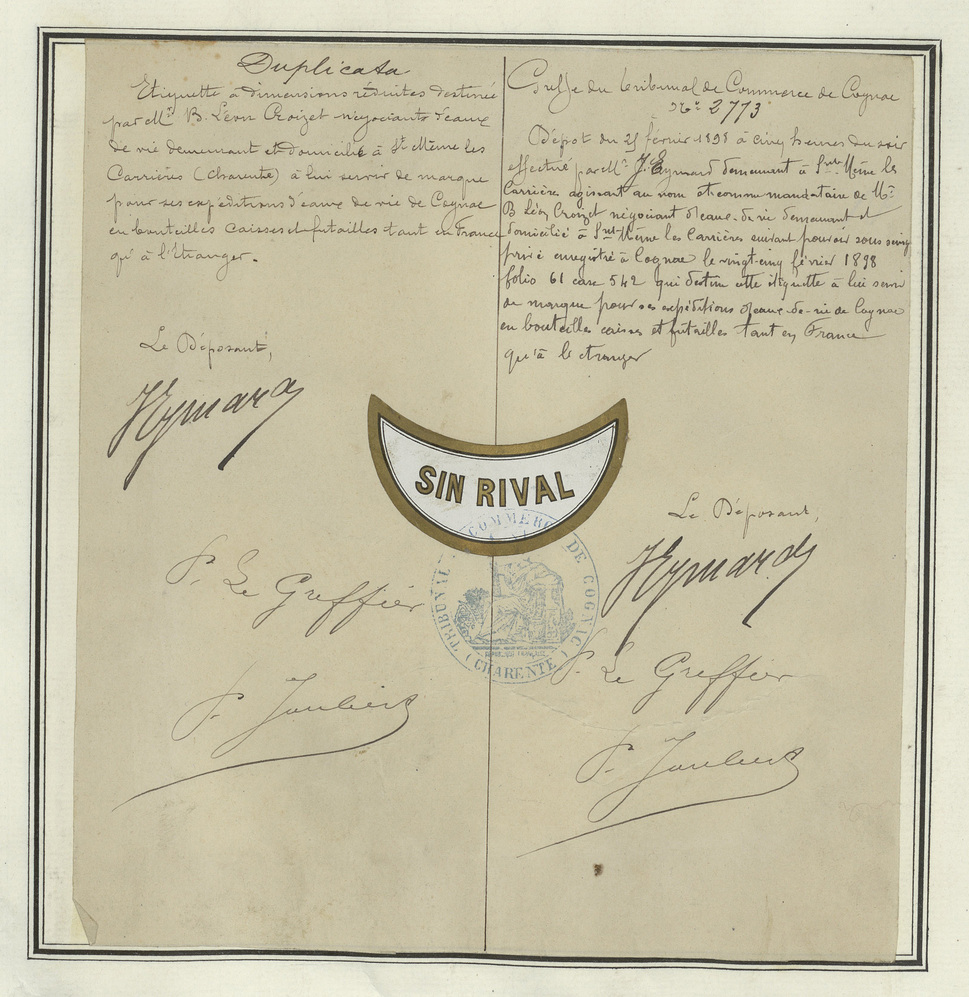 Duplicata
Etiquette à dimensions réduites destinée
par Mr. B. Léon Croizet négociants d'eaux
de vie demeurant et domicilié à St Même les
Carrières (Charente) à lui servir de marque
pour ses expéditions d'eaux de vie de Cognac
en bouteilles caisses et futailles tant en France
qu'à l'Etranger.
Le Déposant,
JEymard
P. Le Greffier
P. Joubert
Greffe du Tribunal de Commerce de Cognac
No. 2773
Dépôt du 25 février 1898 à cinq heures du soir
effectué par Mr. J. Eymard demeurant à Saint Même les
Carrière agissant au nom et comme mandataire de Mr.
B Léon Croizet négociant d'eaux-de-vie demeurant et
domicilié à Saint-Même les Carrières suivant pouvoir sous seing
privé enregistré à Cognac le vingt-cinq février 1898
folio 61 case 542 qui destine cette étiquette à lui servir
de marque pour ses expéditions d'eaux-de-vie de Cognac
en bouteilles caisses et futailles tant en France
qu'à l'étranger
SIN RIVAL
Le Déposant,
JEymard
TRIBUNAL DE COMMERCE DE COGNAC
(CHARENTE)
P. Le Greffier
P. Joubert